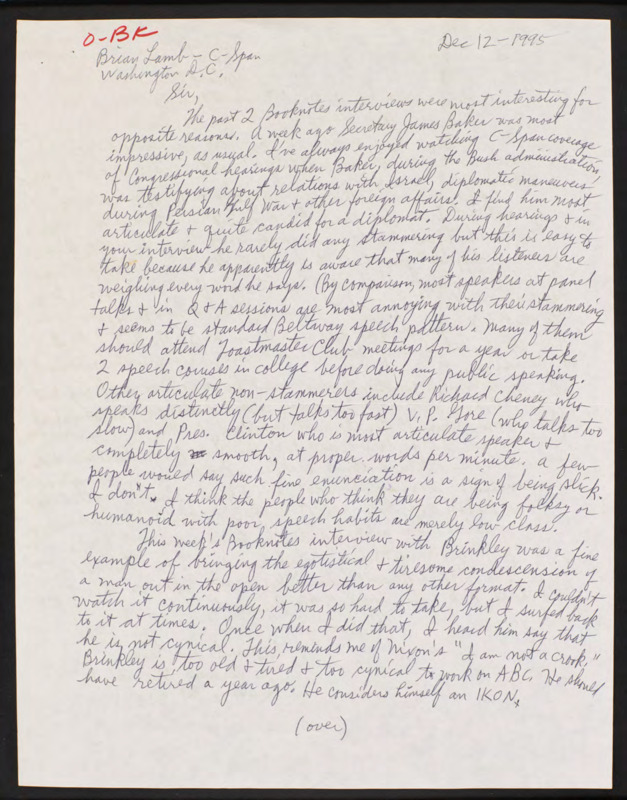 O-BK
Dec 12-1995
Brian Lamb - C-Span
Washington D.C.
Sir,
The past 2 Booknotes interviews were most interesting for
opposite reasons. A week ago Secretary James Baker was most
impressive, as usual. I've always enjoyed watching C-Span coverage
of Congressional hearings when Baker, during the Bush administration,
was testifying about relations with Israel, diplomatic maneuvers
during Persian Gulf War & other foreign affairs. I find him most
articulate & quite candid for a diplomat. During hearings & in
your interview he rarely did any stammering but this is easy to
take because he apparently is aware that many of his listeners are
weighing every word he says. (By comparison, most speakers at panel
talks & in Q & A sessions are most annoying with their stammering
& seems to be standard Beltway speech pattern. Many of them
should attend Toastmaster Club meetings for a year or take
2 speech courses in college before doing any public speaking.
Other articulate non-stammerers include Richard Cheney who
speaks distinctly (but talks too fast) V.P. Gore (who talks too
slow) and Pres. Clinton who is most articulate speaker &
completely smooth, at proper words per minute. A few
people would say such fine enunciation is a sign of being slick.
I don't. I think the people who think they are being folksy or
humanoid with poor speech habits are merely low class.
This week's Booknotes interview with Brinkley was a fine
example of bringing the egotistical & tiresome condescension of
a man out in the open better than any other format. I couldn't
watch it continuously, it was so hard to take, but I surfed back
to it at times. Once when I did that, I heard him say that
he is not cynical. This reminds me of Nixon's "I am not a crook."
Brinkley is too old & tired & too cynical to work on ABC. He should
have retired a year ago. He considers himself an IKON.
(over)